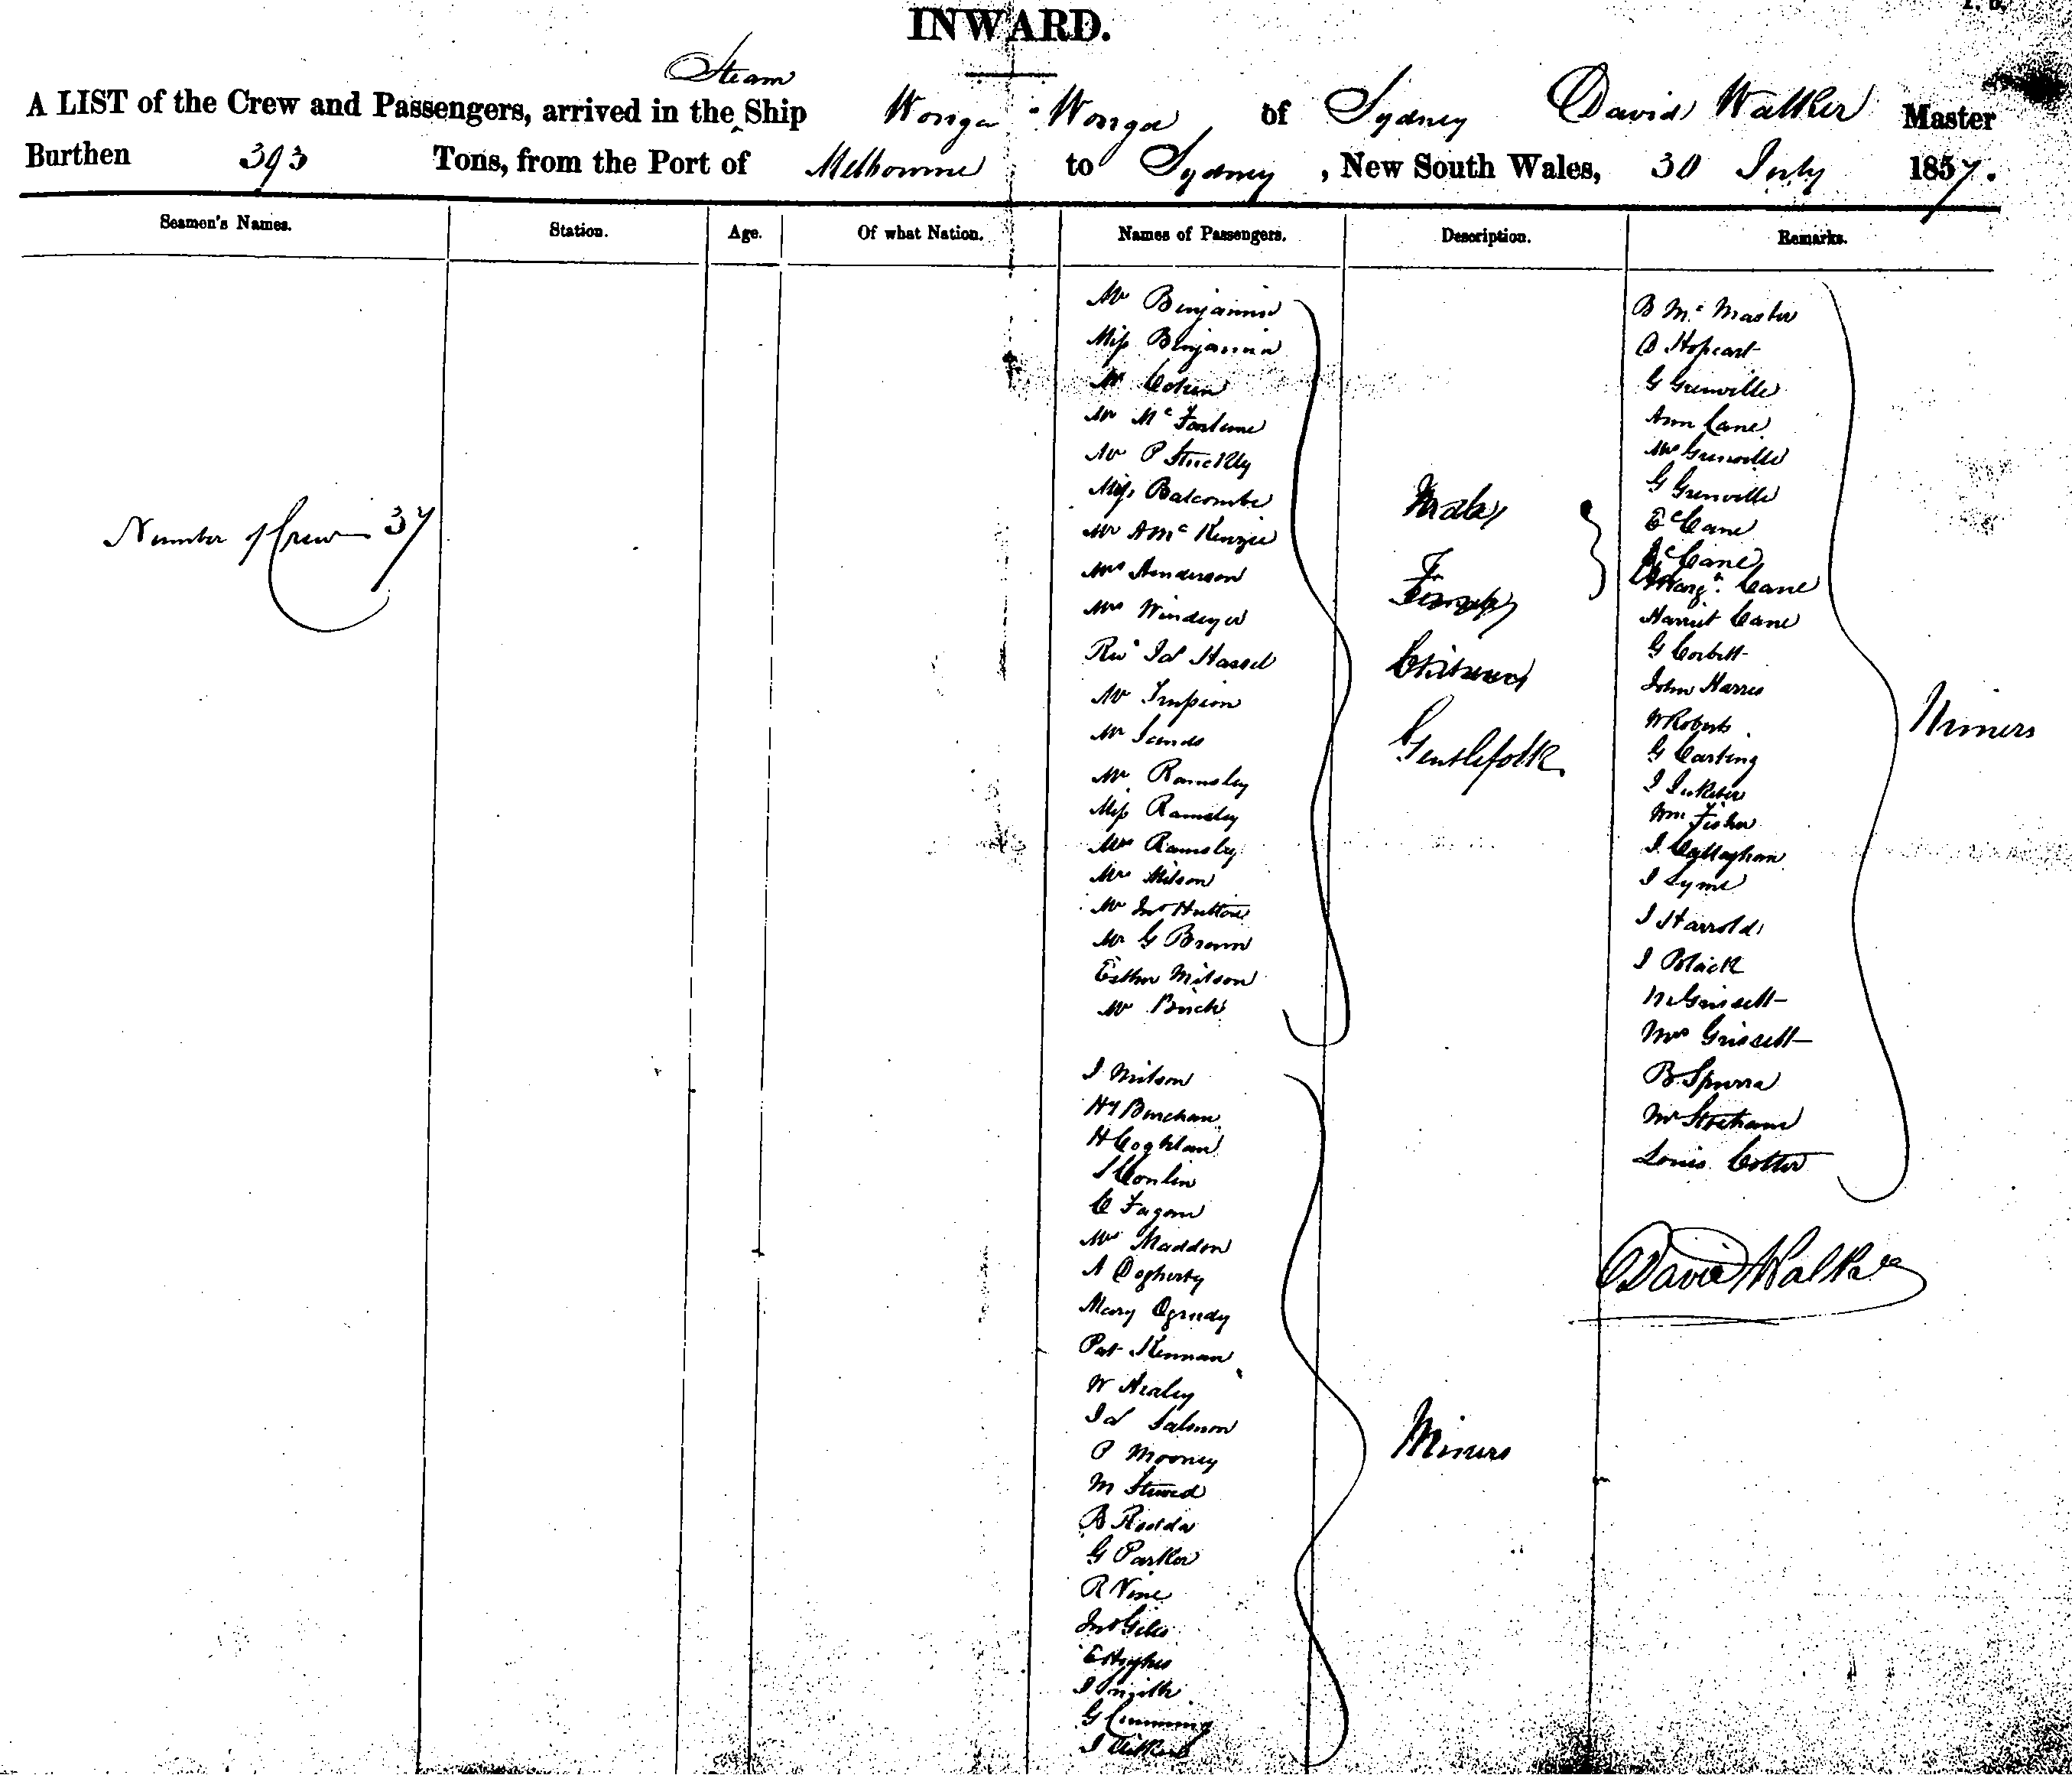 INWARD.
Steam
A LIST of the Crew and Passengers, arrived in the Ship Wonga Wonga of Sydney David Walker Master
Burthen 393 Tons, from the Port of Melbourne to Sydney, New South Wales, 30 July 1857.
Seamen's Names. Station. Age. Of what Nation. Names of Passengers. Description. Remarks.
Number of Crew 37
Mr Benjamin
Miss Benjamin
Mr Cohen
Mr McFarlane
Mr P Stuckley
Miss Balcombe
Mr A McKenzie
Mrs Henderson
Mrs Windeyer
Revd Jas Hassel
Mr Simpson
Mr Sands
Mr Ramsley
Miss Ramsley
Mrs Ramsley
Mrs Milson
Mr Jno Hutton
Mr G Brown
Esther Milson
Mr Birch
Males
Females
Children
Gentlefolk
J Milson
Hy Burchan
H Coghlan
J Conlin
C Fagan
Mrs Madden
A Dogherty
Mary Ogrady
Pat Kennan
W Healey
Jas Salmon
P Mooney
M
B Rodda
G Parker
R Vine
Jno Giles
E Hughes
J Smith
G Cumming
J
Miners
B McMaster
D Hopcart
G Grenville
Ann Cane
Mrs Grenville
G Grenville
E Cane
J Cane
Margt Cane
Harriet Cane
G Corbett
John Harris
W Roberts
G Carting
J
Wm Fisher
J Callaghan
J Lyme
J Harrold
J Black
Grissett
Mrs Grissett
B Spurra
Mr
Louis Cotter
Miners
David Walker